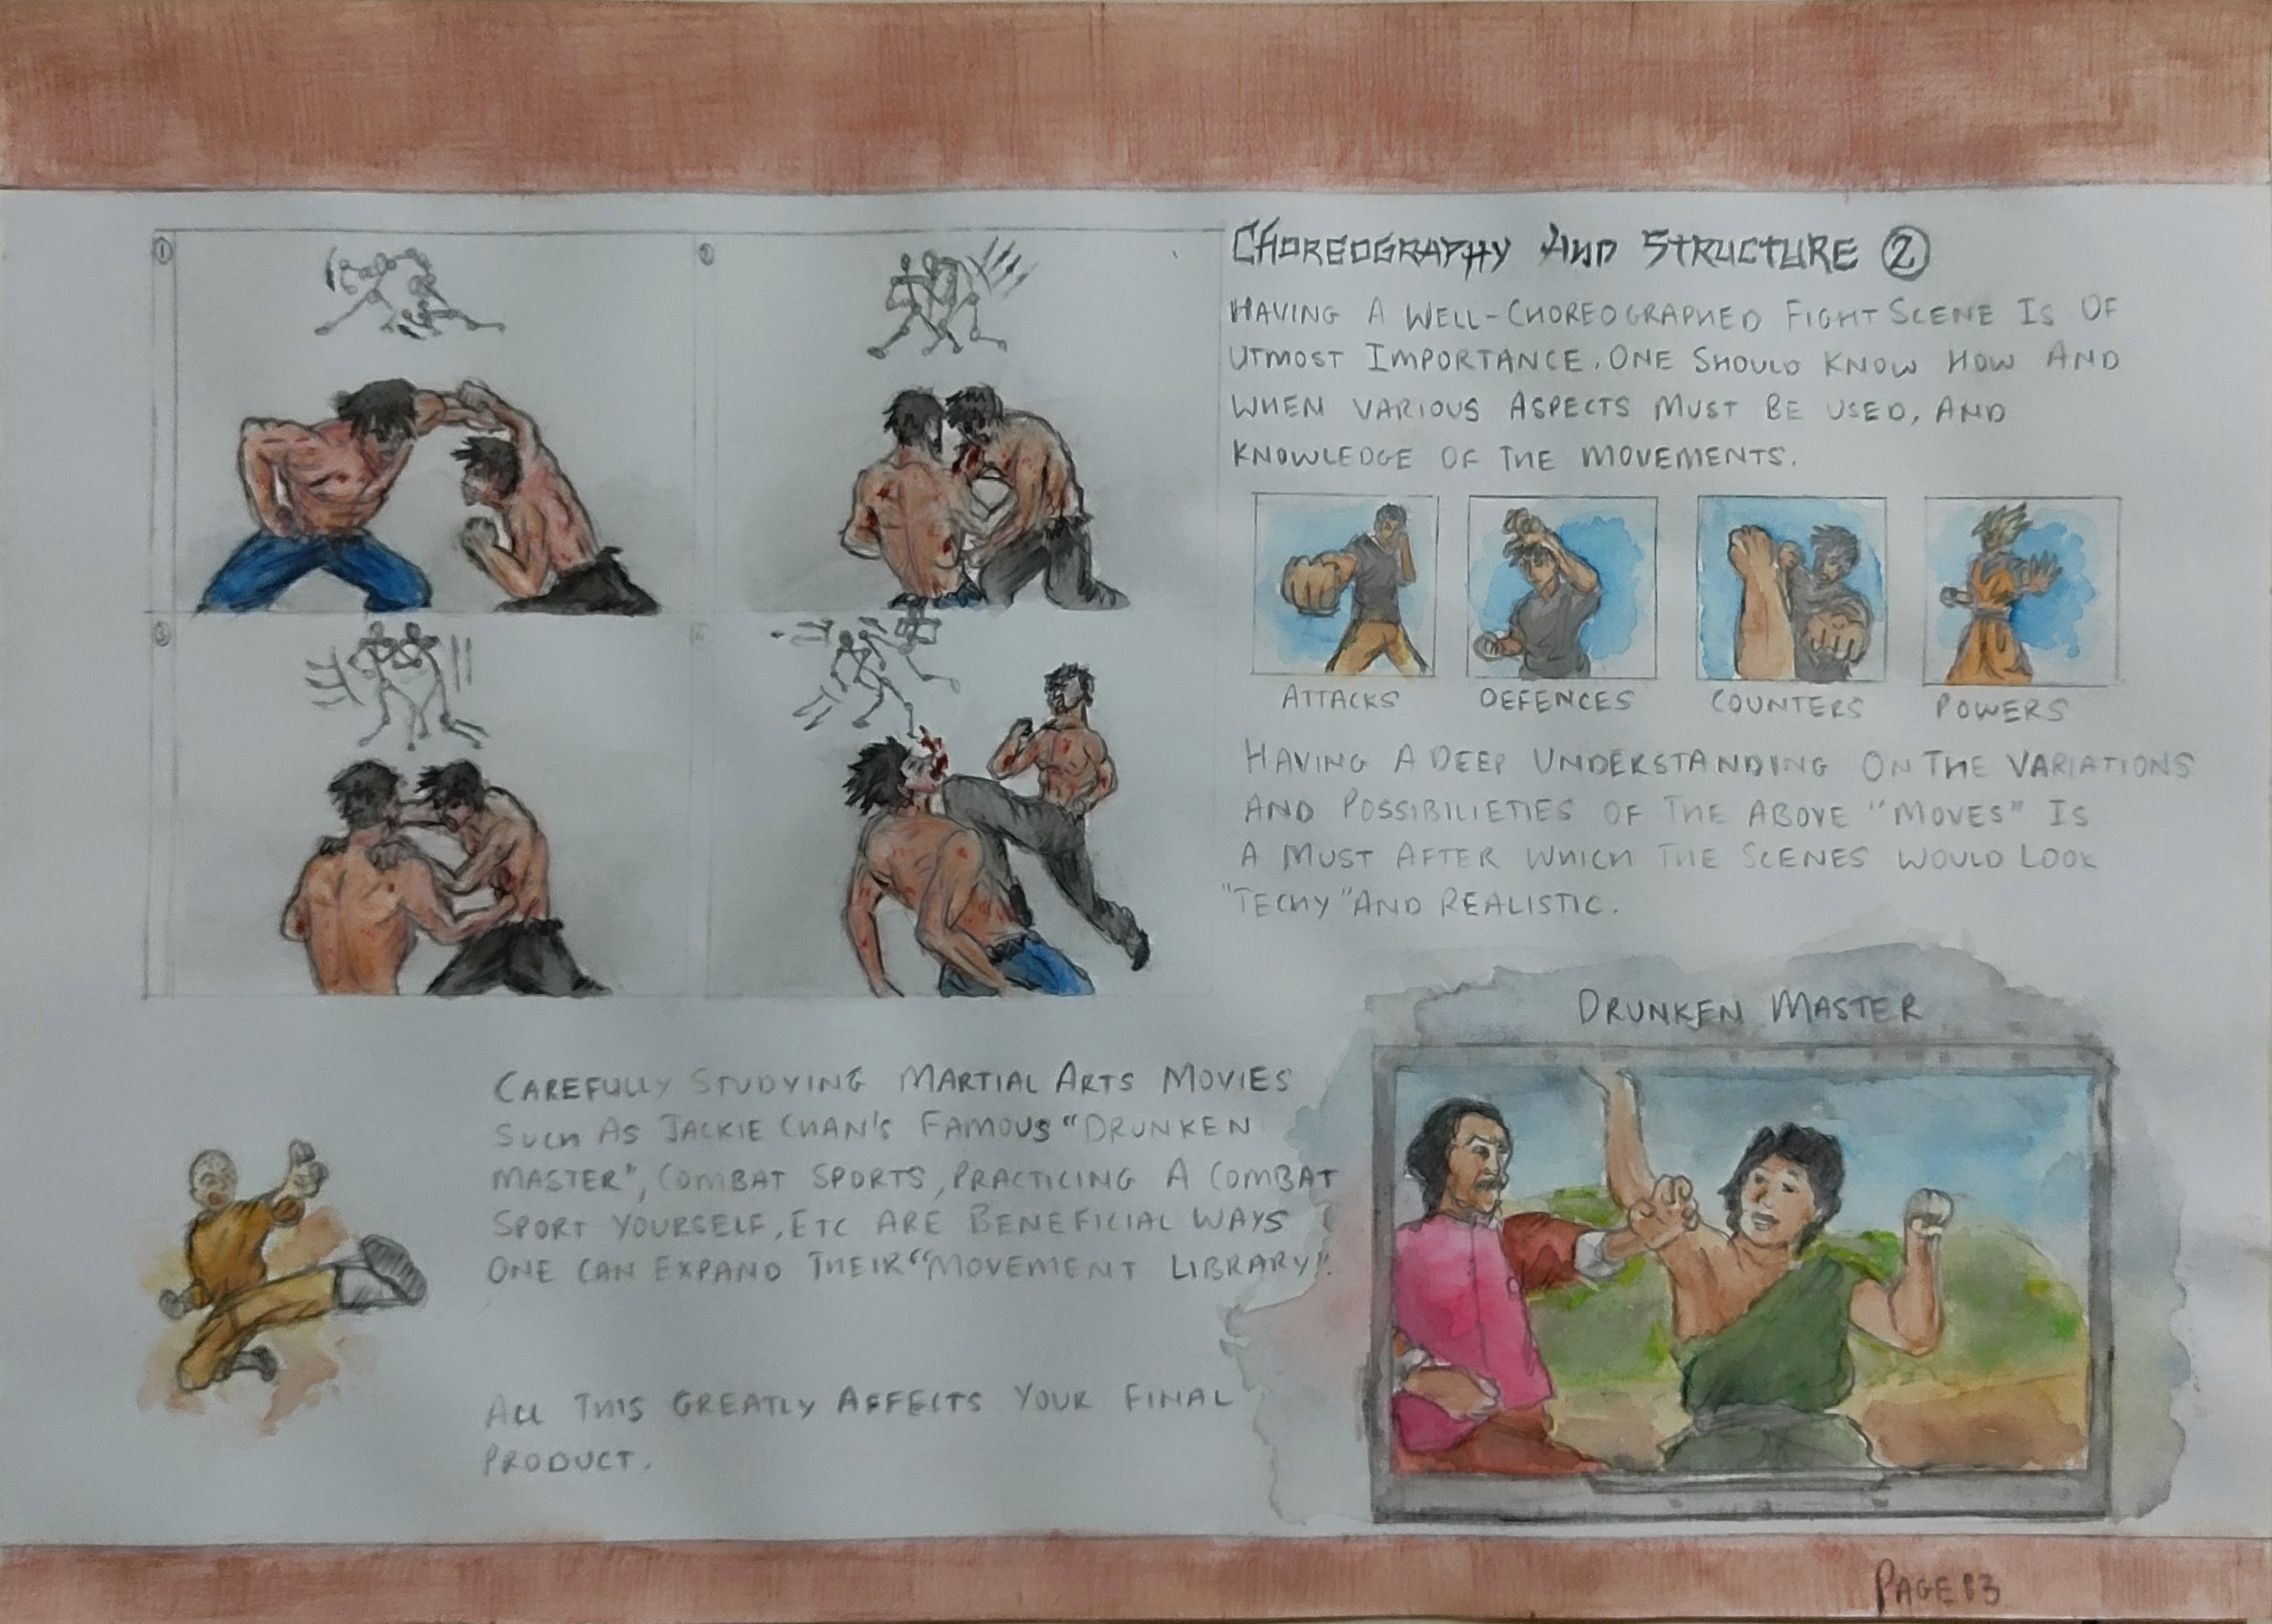 ① ②
③ 4
CHOREOGRAPHY AND STRUCTURE ②
HAVING A WELL-CHOREOGRAPHED FIGHT SCENE IS OF
UTMOST IMPORTANCE. ONE SHOULD KNOW HOW AND
WHEN VARIOUS ASPECTS MUST BE USED, AND
KNOWLEDGE OF THE MOVEMENTS.
ATTACKS DEFENCES COUNTERS POWERS
HAVING A DEEP UNDERSTANDING ON THE VARIATIONS
AND POSSIBILIETIES OF THE ABOVE "MOVES" IS
A MUST AFTER WHICH THE SCENES WOULD LOOK
"TECHY" AND REALISTIC.
CAREFULLY STUDYING MARTIAL ARTS MOVIES
SUCH AS JACKIE CHAN'S FAMOUS "DRUNKEN
MASTER", COMBAT SPORTS, PRACTICING A COMBAT
SPORT YOURSELF, ETC ARE BENEFICIAL WAYS
ONE CAN EXPAND THEIR "MOVEMENT LIBRARY".
ALL THIS GREATLY AFFECTS YOUR FINAL
PRODUCT.
DRUNKEN MASTER
PAGE 83